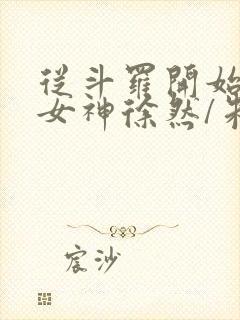 從斗羅開始
女神徐然/朱
宸沙